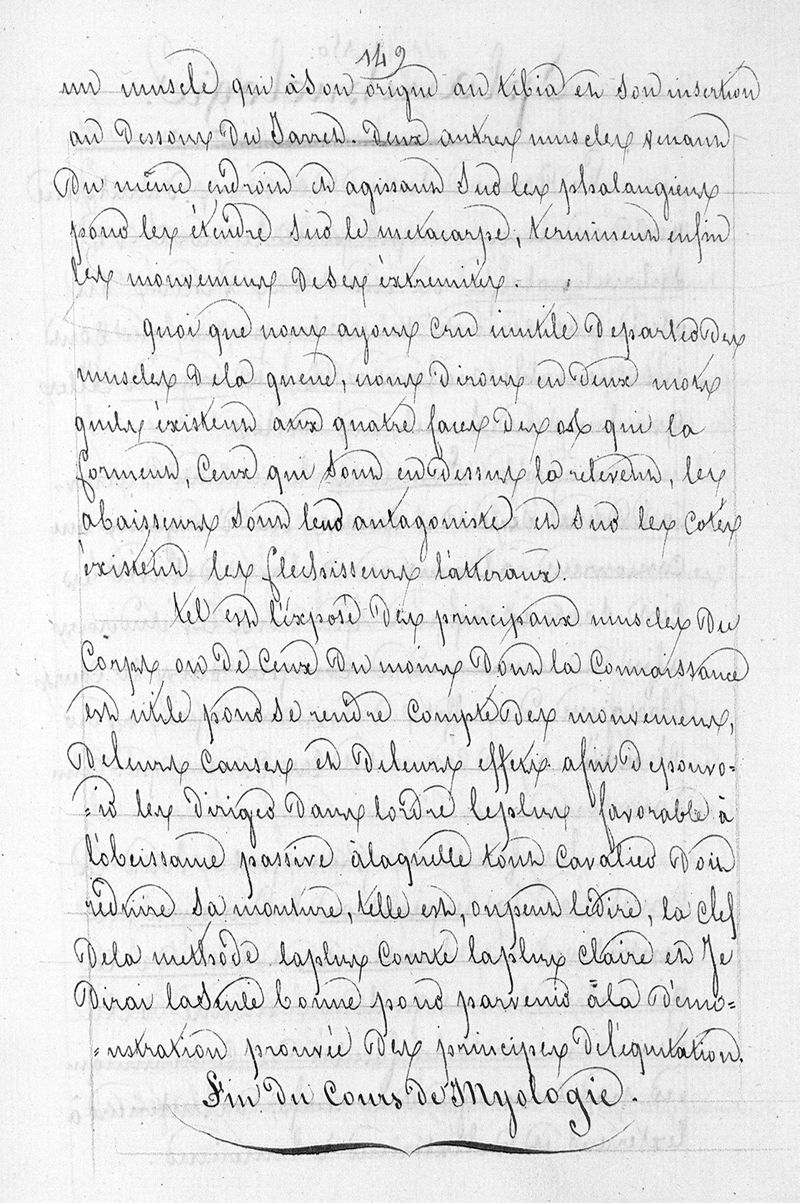 149
un muscle qui à son origine au tibia et son insertion
au dessous du Jarret. deux autres muscles venant
du même endroit et agissant sur les phalangiens
pour les étendre sur le metacarpe, terminent enfin
les mouvemens de ses éxtremités.
quoi que nous ayons cru inutile de parler des
muscles de la queue, nous dirons en deux mots
quils éxistent aux quatre faces des os qui la
forment, Ceux qui sont en dessus la relevent, les
abaisseurs sont leur antagoniste et sur les cotés
éxistent les flechisseurs latteraux.
tel est l'éxposé des principaux muscles du
Corps ou de Ceux du moins dont la Connaissance
est utile pour se rendre Compte des mouvemens,
de leurs Causes et de leurs effets afin de pouvo-
-ir les diriger dans lordre le plus favorable à
l'obeissance passive à laquelle tout Cavalier doit
réduire sa monture, telle est, on peut le dire, la clef
de la méthode la plus Courte la plus Claire et Je
dirai la seule bonne pour parvenir à la démo-
-nstration prouvée des principes de l'équitation.
Fin du Cours de Myologie.